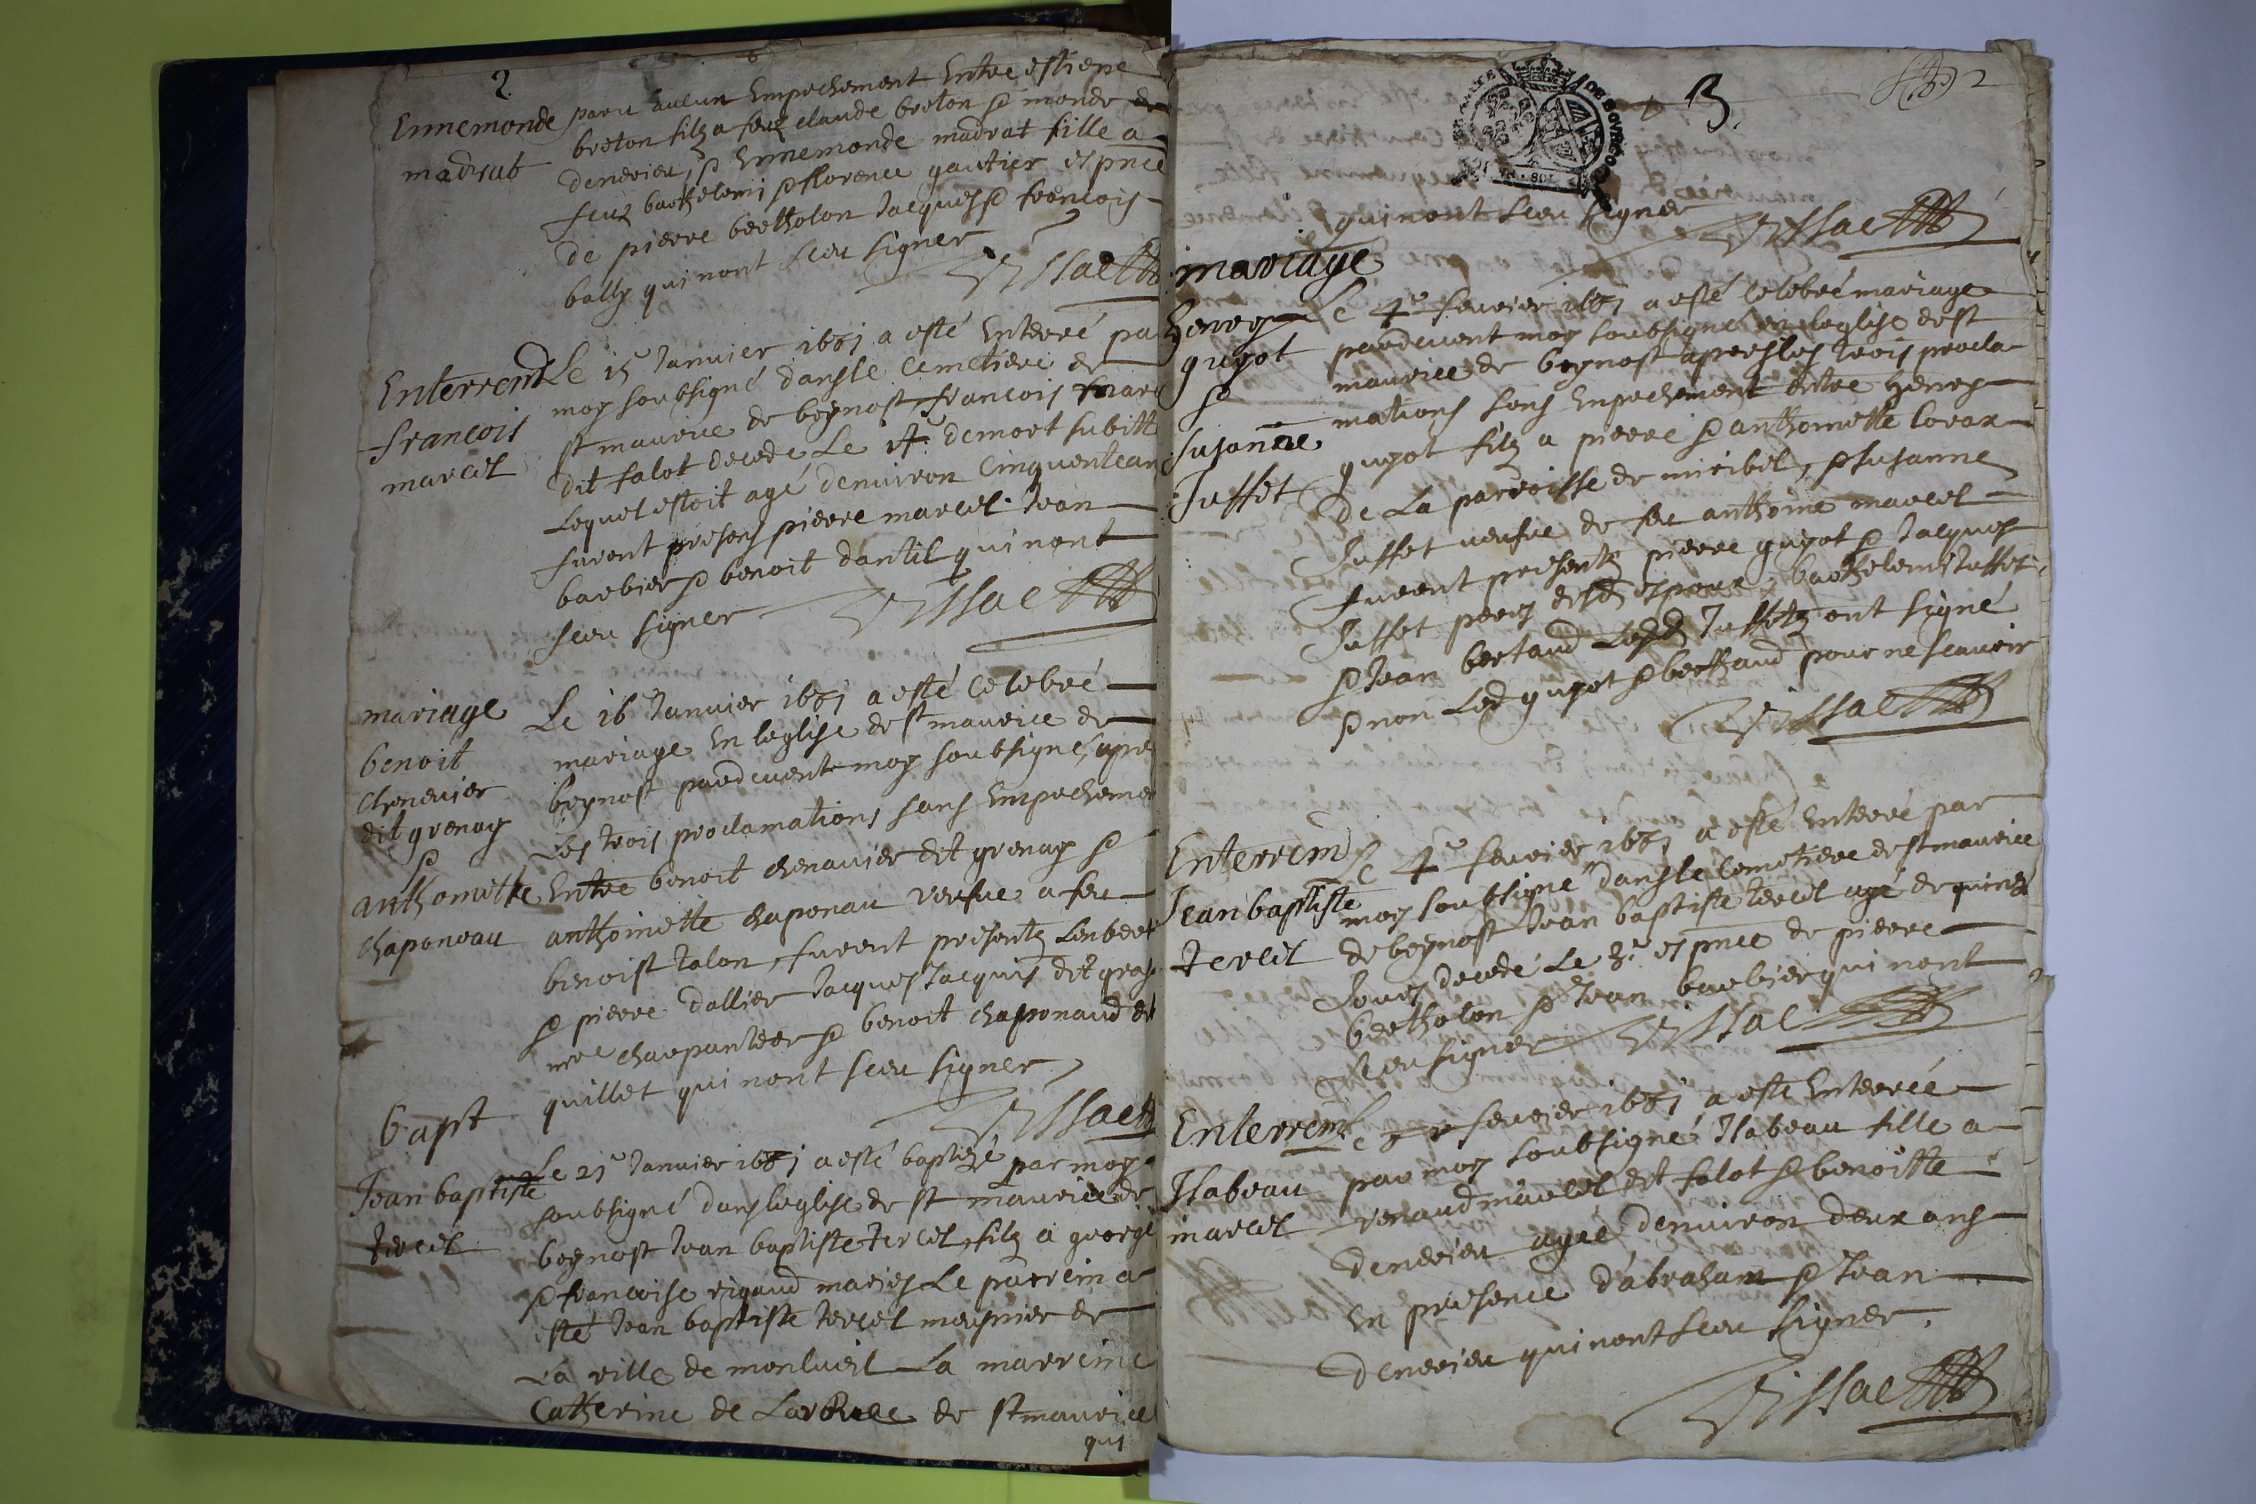 2
Ennemonde
madrat
paru aucun Empechement Entre estiene
breton filz a feuz claude breton & monde de
denerieu, & Ennemonde madrat fille a
feuz barthelemi & florence gautier et pnce
de pierre bertholon Jacques & francois
bally qui nont sceu signer
Enterremt
francois
marcel
Le 15 Janvier 1681 a esté Enterré pa
moy soubsigné dans le Cemetiere de
st maurice de beynost francois marc
dit salot decede Le 14e de mort subitte
Lequel estoit agé denviron Cinquente an
furent presens pierre marcel Jean
barbier & benoit dantil qui nont
sceu signer
mariage
benoit
Chenevier
dit grenay
&
anthoinette
Chaponeau
Le 16 Janvier 1681 a esté Celebré
mariage En leglise de st maurice de
beynost pardevant moy soubsigné, apres
Les trois proclamations sans Empecheme
Entre benoit chenavier dit grenay &
anthoinette chaponau veufue a feu
benoist talon, furent presentz
& pierre dallier Jacques Jacquis dit
me charpantier & benoit chaponaud dit
quillet qui nont sceu signer
bapt
Jean baptiste
tercel
Le 21e Janvier 1681 a esté baptizé par moy
soubsigné dans leglise de st maurice de
beynost Jean baptiste tercel, filz a george
& francoise rigaud maries Le parrein a
esté Jean baptiste tercel meusnier de
La ville de monluel La marreine
Catherine de Larbre de st maurice
qui
3.
2
qui nont sceu signer
mariage
henry
guyot
&
susanne
Juffet
Le 4e fevrier 1681 a esté Celebré mariage
pardevant moy soubsigné en leglise de st
maurice de beynost apres les trois procla-
mations sans Empechement Entre henry
guyot filz a pierre & anthoinette Corax
de La parroisse de miribel, & susanne
Juffet veufue de feu anthoine marcel
furent presentz pierre guyot & Jacques
Juffet peres desd espoux, barthelemi Juffet
& Jean bertaud Lesd Juffetz ont signé
& non Led guyot & berthaud pour ne scavoir
Enterremt
Jean baptiste
tercel
Le 4e fevrier 1681 a esté Enterré par
moy soubsigné dans le Cemetiere de st maurice
de beynost Jean baptiste tercel agé de quinze
Jours decedé Le 3e et pnce de pierre
bertholon & Jean barbier qui nont
sceu signer
Enterremt
Isabeau
marcel
Le fevrier 1681 a esté Enterrée
par moy soubsigné Isabeau fille a
renaud marcel dit salot & benoitte
denerieu agée denviron deux ans
En presence d'abraham & Jean
denerieu qui nont sceu signer.